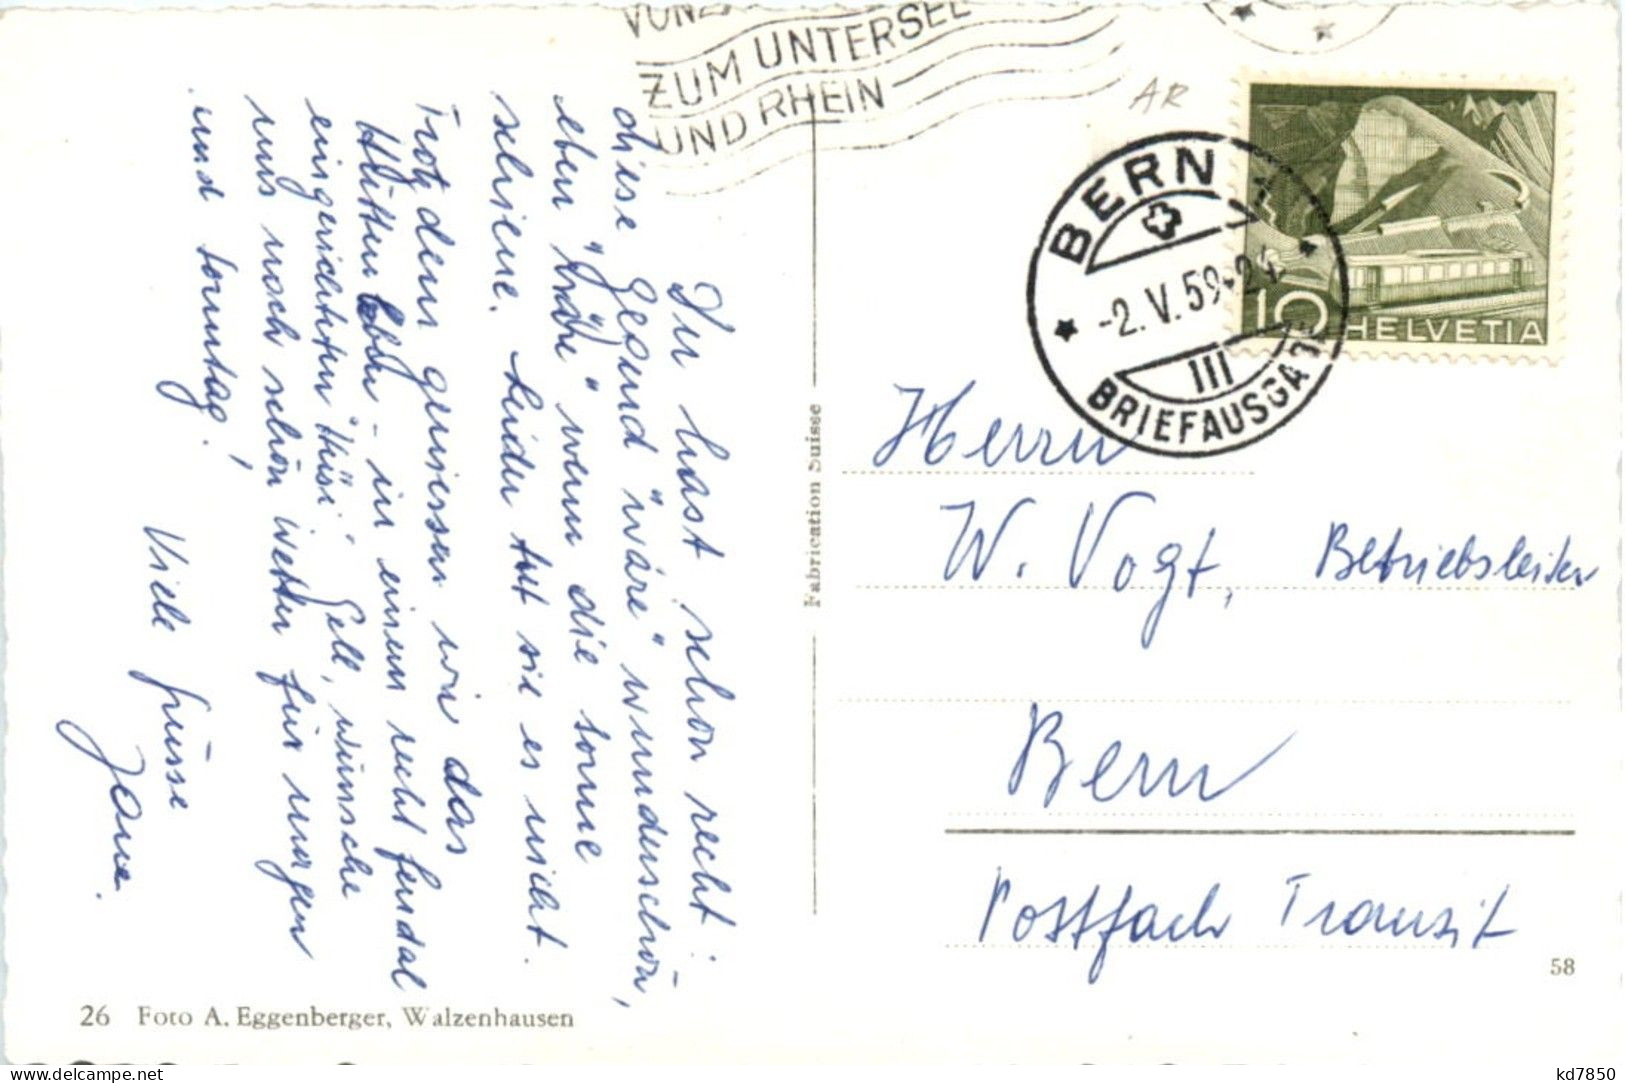 VONZ
ZUM UNTERSEE
UND RHEIN
AR
BERN 1
-2.V.59-24
III
BRIEFAUSGABE
10 HELVETIA
Du hast schon recht:
diese Gegend "wäre" wunderschön,
eben "wäre" wenn die Sonne
schiene. Leider tut sie es nicht.
Trotzdem geniessen wir das
Hütten leben - in einem recht feudal
eingerichteten "Hüsi". Gell, wünsche
uns noch schön Wetter für morgen
und Sonntag!
Viele Grüsse
Fabrication Suisse
Herrn
W. Vogt, Betriebsleiter
Bern
Postfach Transit
58
26 Foto A. Eggenberger, Walzenhausen
delcampe.net
kd7850